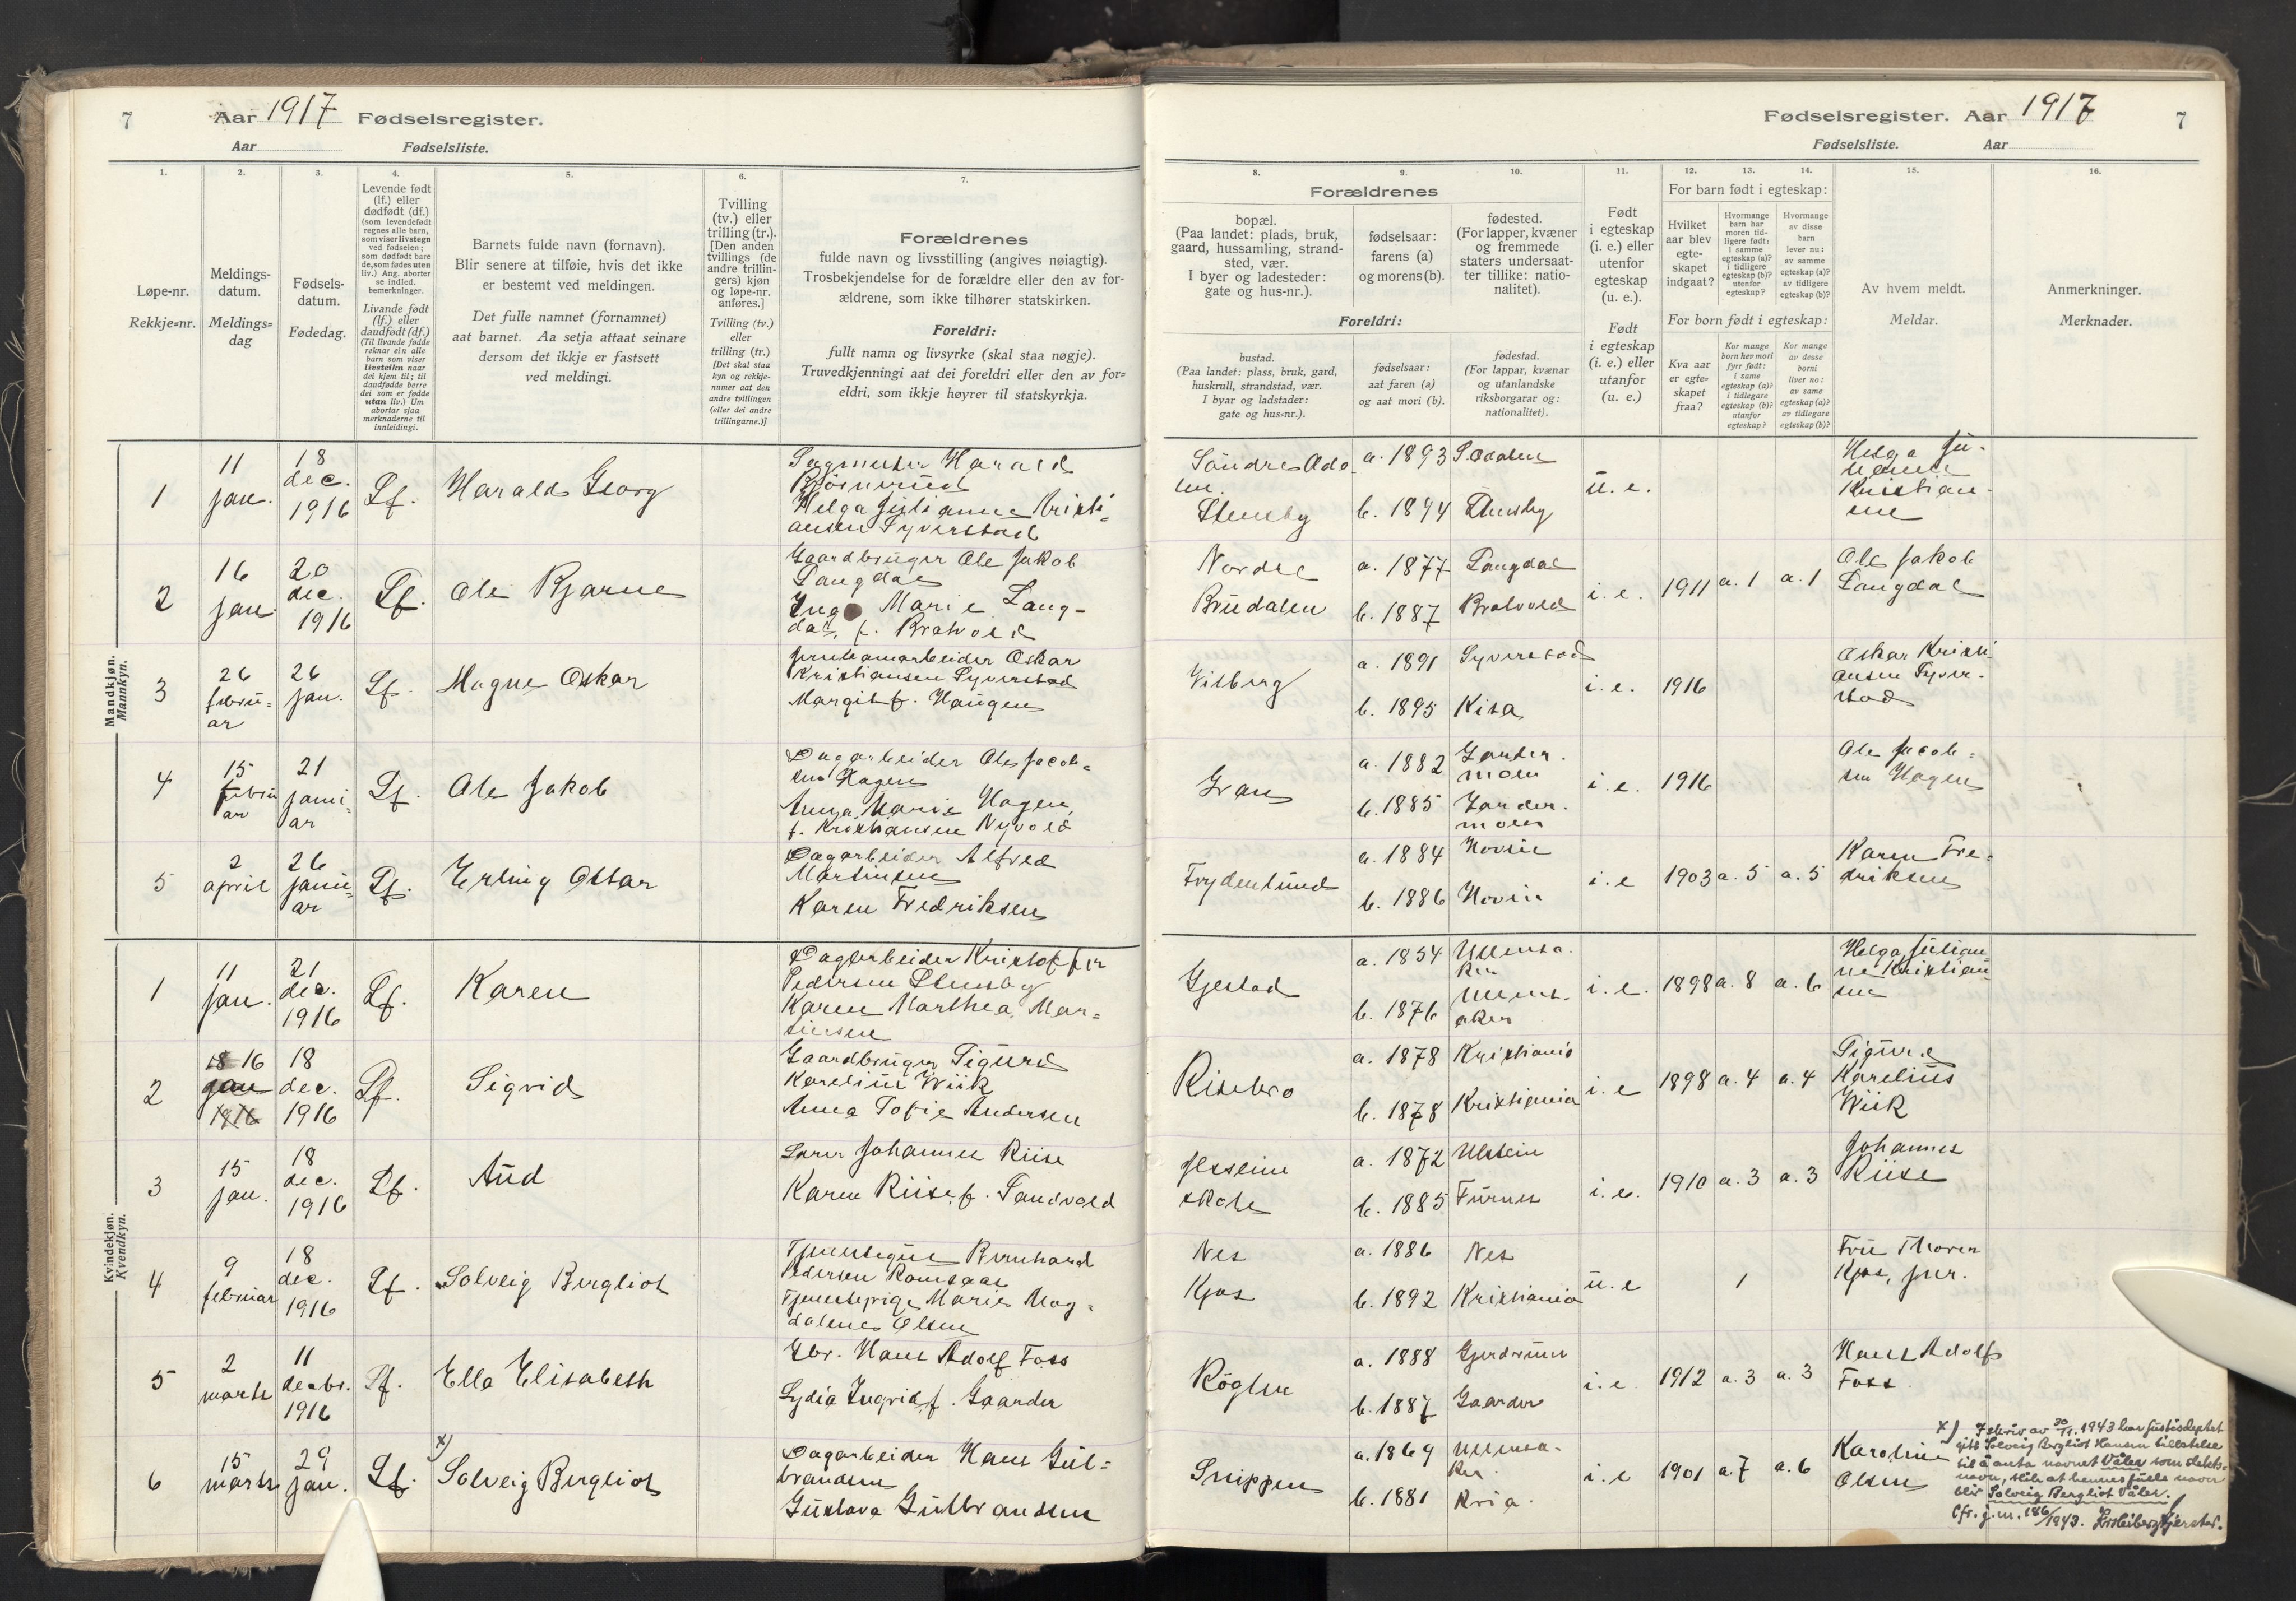 7
Aar 1917 Fødselsregister.
Aar Fødselsliste.
1.
2.
3.
4.
5.
6.
7.
Løpe-nr.
Rekkje-nr.
Meldings-
datum.
Meldings-
dag
Fødsels-
datum.
Fødedag.
Levende født
(lf.) eller
dødfødt (df.)
(som levendefødt
regnes alle barn,
som viser livstegn
ved fødselen;
som dødfødt bare
de, som fødes uten
liv.) Ang. aborter
se indled.
bemerkninger.
Livande født
(lf.) eller
daudfødt (df.)
(Til livande fødde
reknar ein alle
barn som viser
livsteikn naar
dei kjem til; til
daudfødde berre
dei som er fødde
utan liv.) Um
abortar sjaa
merknaderne til
innleidingi.
Barnets fulde navn (fornavn).
Blir senere at tilføie, hvis det ikke
er bestemt ved meldingen.
Det fulle namnet (fornamnet)
aat barnet. Aa setja attaat seinare
dersom det ikkje er fastsett
ved meldingi.
Tvilling
(tv.) eller
trilling (tr.).
[Den anden
tvillings (de
andre trillin-
gers) kjøn
og løpe-nr.
anføres.]
Tvilling (tv.)
eller
trilling (tr.)
[Det skal staa
kyn og rekkje-
numer aat den
andre tvillingen
(eller dei andre
trillingarne.)]
Forældrenes
fulde navn og livsstilling (angives nøiagtig).
Trosbekjendelse for de forældre eller den av for-
ældrene, som ikke tilhører statskirken.
Foreldri:
fullt namn og livsyrke (skal staa nøgje).
Truvedkjenningi aat dei foreldri eller den av for-
eldri, som ikkje høyrer til statskyrkja.
Mandkjøn.
Mannkyn.
1
11
jan.
18
dec.
1916
Lf.
Harald Georg
Sagmester Harald
Bjørnerud
Helga Julianne Kristi-
ansen Syverstad
2
16
jan.
20
dec.
1916
Lf.
Ole Bjarne
Gaardbruger Ole Jakob
Langdal
Inga Marie Lang-
dal, f. Bralvold
3
26
febru-
ar
26
jan.
Lf.
Magne Oskar
Jernbanearbeider Oskar
Kristiansen Syverstad
Margit f. Haugen
4
15
febru
ar
21
janu-
ar
Lf.
Ole Jakob
Dagarbeider Ole Jacob-
sen Hagen
Anna Marie Hagen,
f. Kristiansen Nyvold
5
2
april
26
janu-
ar
Lf.
Erling Ottar
Dagarbeider Alfred
Martinsen
Karen Fredriksen
Kvindekjøn.
Kvendkyn.
1
11
jan.
21
dec.
1916
Lf.
Karen
Dagarbeider Kristoffer
Pedersen Stensby
Karen Marthea Mar-
tinsen
2
18 16
jan
1916
18
dec.
1916
Lf.
Sigrid
Gaardbruger Sigurd
Karelius Wiik
Anna Sofie Andersen
3
15
jan.
18
dec.
1916
Lf.
Aud
Lærer Johannes Riise
Karen Riise, f. Sandvold
4
9
februar
18
dec.
1916
Lf.
Solveig Bergliot
Tjenestegut Bernhard
Pedersen Ramsaas
Tjenestepige Marie Mag-
dalene Olsen
5
2
marts
11
decbr.
1916
Lf.
Ella Elisabeth
Gbr. Hans Adolf Foss
Lydia Ingrid f. Gaarder
6
15
marts
29
jan.
Lf.
x)
Solveig Bergliot
Dagarbeider Hans Gul-
brandsen
Gustava Gulbrandsen
Fødselsregister. Aar 1917
7
Fødselsliste. Aar
8.
9.
10.
11.
12.
13.
14.
15.
16.
Forældrenes
bopæl.
(Paa landet: plads, bruk,
gaard, hussamling, strand-
sted, vær.
I byer og ladesteder:
gate og hus-nr.).
fødselsaar:
farens (a)
og morens (b).
fødested.
(For lapper, kvæner
og fremmede
staters undersaat-
ter tillike: natio-
nalitet).
Foreldri:
bustad.
(Paa landet: plass, bruk, gard,
huskrull, strandstad, vær.
I byar og ladstader:
gate og hus-nr.).
fødselsaar:
aat faren (a)
og aat mori (b).
fødestad.
(For lappar, kvænar
og utanlandske
riksborgarar og:
nationalitet).
Født
i egteskap
(i. e.) eller
utenfor
egteskap
(u. e.).
Født
i egteskap
(i. e.) eller
utanfor
(u. e.)
For barn født i egteskap:
Hvilket
aar blev
egte-
skapet
indgaat?
Hvormange
barn har
moren tid-
ligere født:
i samme
egteskap (a)?
i tidligere
egteskap (b)?
utenfor
egteskap?
Hvormange
av disse
barn
lever nu:
av samme
egteskap (a)?
av tidligere
egteskap (b)?
For born født i egteskap:
Kva aar
er egte-
skapet
fraa?
Kor mange
born hev mori
fyrr født:
i same
egteskap (a)?
i tidlegare
egteskap (b)?
utanfor
egteskap?
Kor mange
av desse
borni
liver no:
av same
egteskap (a)?
av tidlegare
egteskap (b)?
Av hvem meldt.
Meldar.
Anmerkninger.
Merknader.
Søndre Oda-
len.
Stensby
a. 1893
b. 1894
S. Odalen
Stensby
u. e.
Helga Ju-
lianne
Kristian-
sen
Nordre
Brudalen
a. 1877
b. 1887
Langdal
Bralvold
i. e.
1911
a. 1
a. 1
Ole Jakob
Langdal
Vilberg
a. 1891
b. 1895
Syverstad
Kisa
i. e.
1916
Oskar Kristi-
ansen Syver-
stad
Gran
a. 1882
b. 1885
Garder-
moen
Garder-
moen
i. e.
1916
Ole Jacob-
sen Hagen
Frydenlund
a. 1884
b. 1886
Hovin
Hovin
i. e
1903
a. 5
a. 5
Karen Fre-
driksen
Gjestad
a. 1854
b. 1876
Ullensa-
ker
Ullens-
aker
i. e.
1898
a. 8
a. 6
Helga Julian-
ne Kristian-
sen
Risebro
a. 1878
b. 1878
Kristiania
Kristiania
i. e
1898
a. 4
a. 4
Sigurd
Karelius
Wiik
Jessheim
skole
a. 1872
b. 1885
Ulstein
Furnes
i. e.
1910
a. 3
a. 3
Johannes
Riise
Nes
Kjos
a. 1886
b. 1892
Nes
Kristiania
u. e
1
Fru Thoren
Kjos, jur.
Røglen
a. 1888
b. 1887
Gjerdrum
Gaarder
i. e
1912
a. 3
a. 3
Hans Adolf
Foss
Snippen
a. 1869
b. 1881
Ullensa-
ker.
Kria.
i. e
1901
a. 7
a. 6
Karoline
Olsen
x) I skriv av 30/11. 1943 har Justisdeptet
gitt Solveig Bergliot Hansen tillatelse
til å anta navnet Våler som slekts-
navn, slik at hennes fulle navn
blir Solveig Bergliot Våler.
Cfr. j.nr. 186/1943.